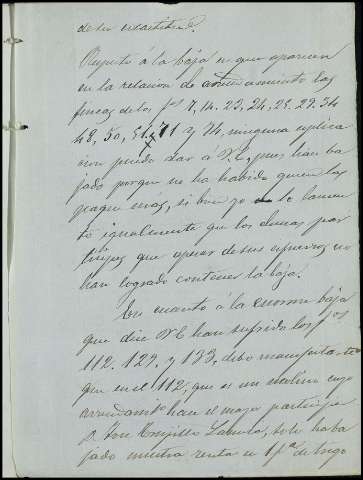 de su exactitud.
Respecto á la baja en que aparecen
en la relacion de arrendamiento las
fincas de los fos 7, 14. 23, 24, 25. 29. 34
48, 50, 51. 71 y 74, ninguna esplica
cion puedo dar á V.E, pues han ba
jado porque no ha habido quien las
pague mas, si bien yo lo lamen
to igualmente que los demas par
tícipes que apesar de sus esfuerzos no
han logrado contener la baja.
En cuanto á la enorme baja
que dice V.E han sufrido los fos
112. 129. y 133, debo manifestarle
que en el 112, que es un molino cuyo
arrendamto hace el mayor partícipe
D. José Trujillo, solo ha ba
jado nuestra renta en 1 fa de trigo